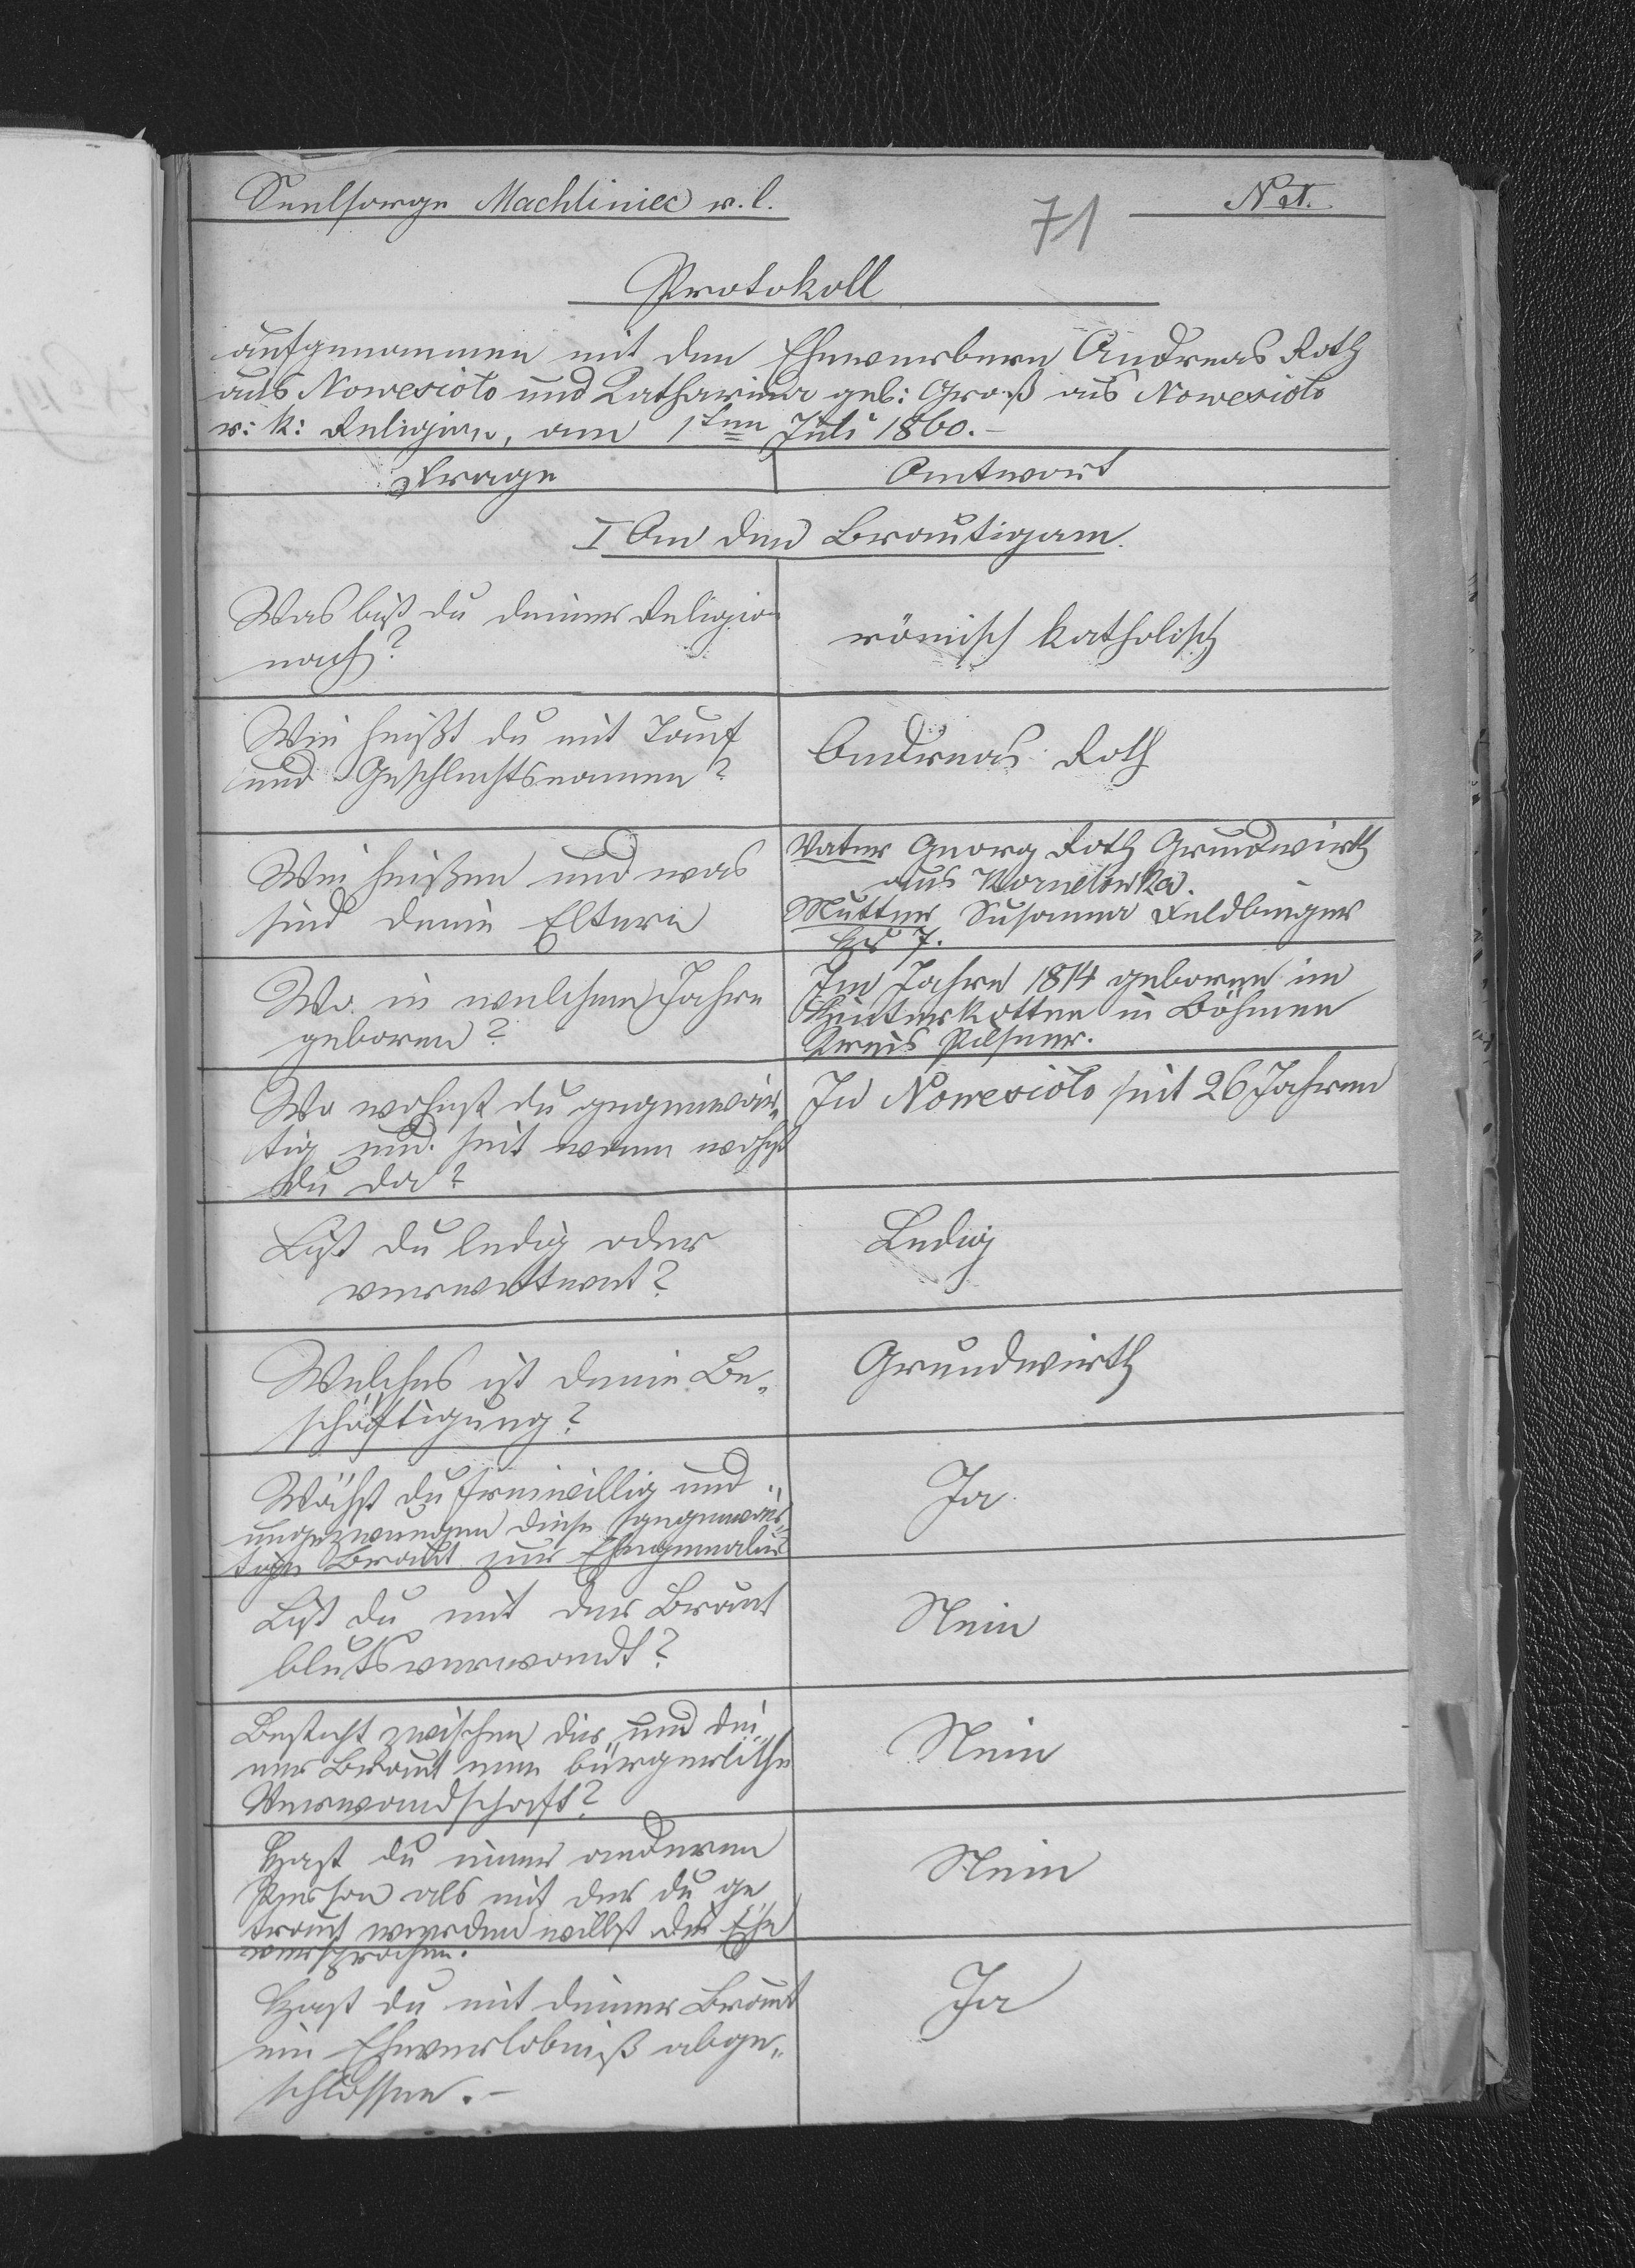 Seelsorge Machliniec r. l.
N 1.
71
Protokoll
aufgenommen mit den Ehewerbern Andreas Roth
aus Nowesioło und Katharina geb: Groß aus Nowesioło
r: k: Religion, am 1ten Juli 1860.-
Frage Antwort
I An den Brautigam.
Was bist du deiner Religion
nach?
römisch katholisch
Wie heißt du mit Tauf
und Geschlechtsnamen?
Andreas Roth
Wie heißen und was
sind deine Eltern
Vater Georg Roth Grundwirth
aus Kornelowka.
Mutter Susanna Feldbinger
7.
Wo in welchem Jahre
geboren?
Im Jahre 1814 geboren im
Hinterkotten in Böhmen
Kreis Pilsner.
Wo wohnst du gegenwär-
tig und seit wann wohnst
du da?
In Nowesioło seit 26 Jahren
Bist du ledig oder
verwittwet?
Ledig
Welches ist deine Be-
schäftigung?
Grundwirth
du freiwillig und
ungezwungen diese gegenwär-
tige Braut zur Ehegemalin
Ja
Bist du mit der Braut
blutsverwandt?
Nein
Besteht zwischen dir und dei-
ner Braut eine bürgerliche
Verwandschaft?
Nein
Hast du einer anderen
Person als mit der du ge
traut werden willst die Ehe
versprochen.
Nein
Hast du mit deiner Braut
ein Eheverlobniß abge-
schlossen.-
Ja